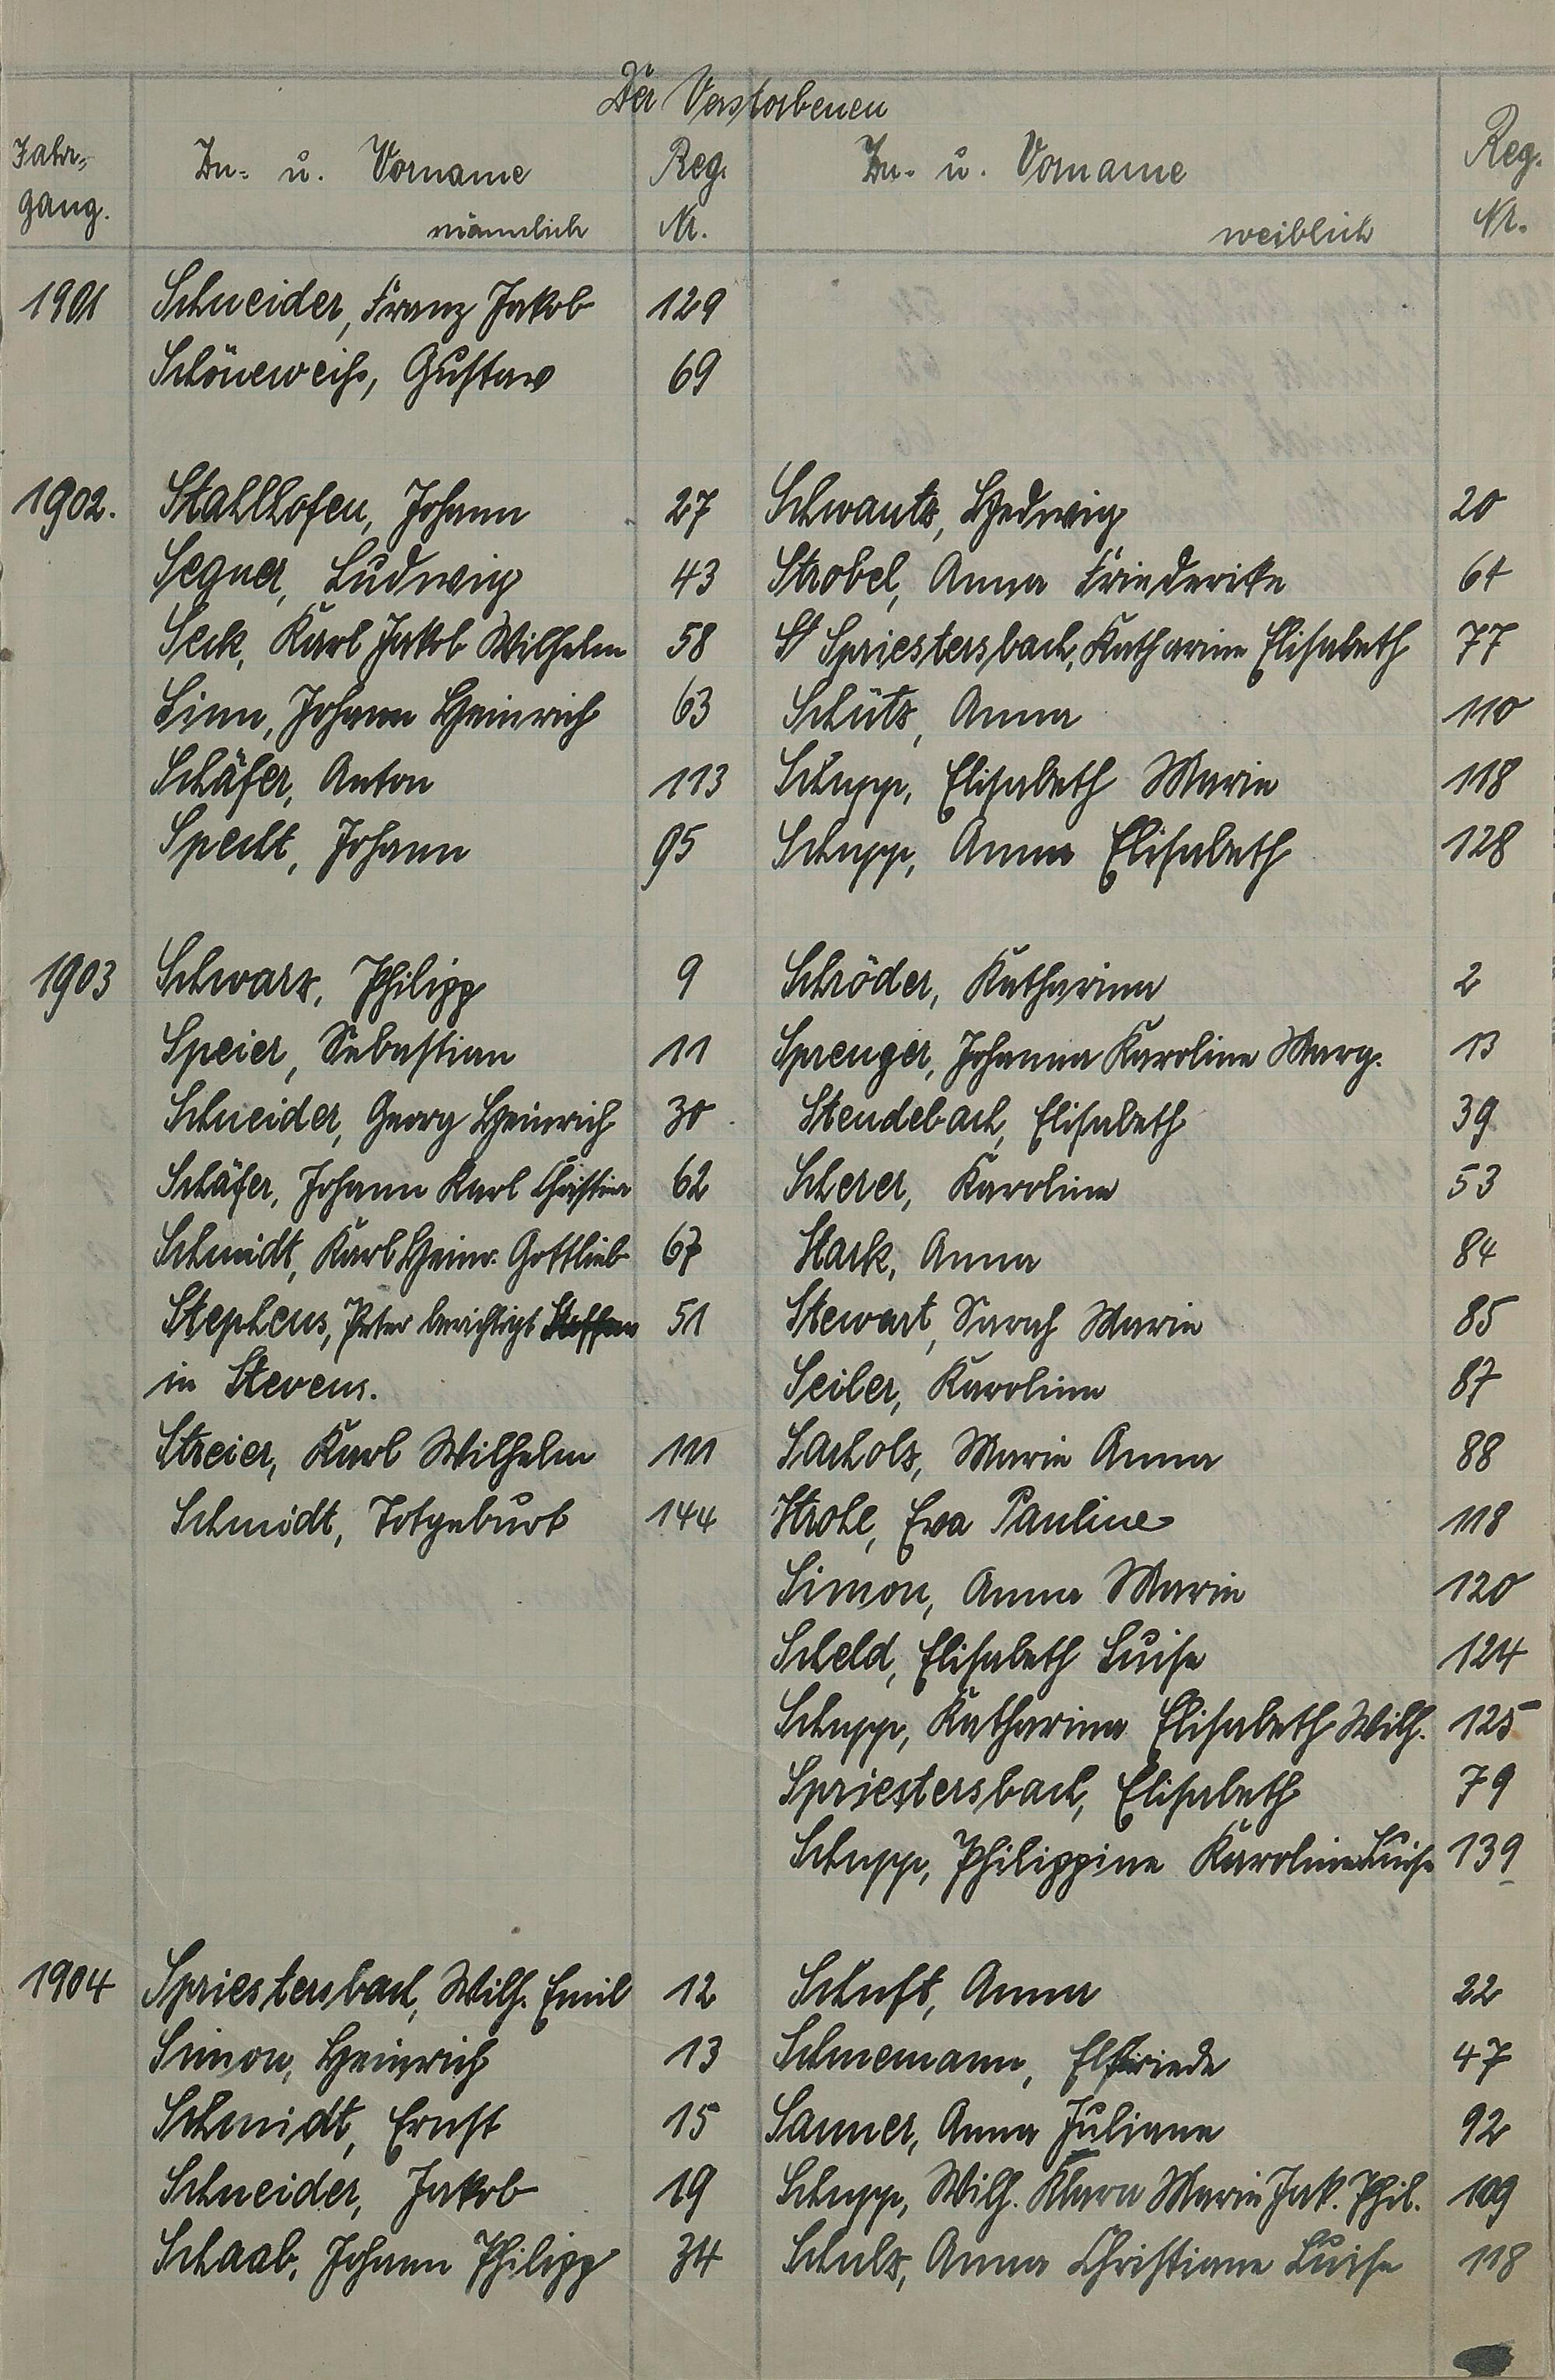 Der Verstorbenen
Jahr-
gang.
Zu- u. Vorname
männlich
Reg.
Nr.
Zu- u. Vorname
weiblich
Reg.
Nr.
1901 Schneider, Franz Jakob 129
Schöneweiß, Gustav 69
1902. Stahlhofen, Johann 27 Schwantz, Hedwig 20
Segner, Ludwig 43 Strobel, Anna Friederike 64
Seck, Karl Jakob Wilhelm 58 St Spriestersbach, Katharine Elisabeth 77
Sinn, Johann Heinrich 63 Schütz, Anna 110
Schäfer, Anton 113 Schupp, Elisabeth Marie 118
Specht, Johann 95 Schupp, Anna Elisabeth 128
1903 Schwarz, Philipp 9 Schröder, Katharina 2
Speier, Sebastian 11 Sprenger, Johanna Karoline Marg. 13
Schneider, Georg Heinrich 30 Stendebach, Elisabeth 39
Schäfer, Johann Karl Christian 62 Scherer, Karoline 53
Schmidt, Karl Heinr. Gottlieb 67 Stark, Anna 84
Stephens, Peter berichtigt Steffen 51 Stewart, Sarah Marie 85
in Stevens. Seiler, Karoline 87
Streier, Karl Wilhelm 111 Sacholz, Marie Anna 88
Schmidt, Totgeburt 144 Strohe, Eva Pauline 118
Simon, Anna Marie 120
Scheld, Elisabeth Luise 124
Schupp, Katharina Elisabeth Wilh. 125
Spriestersbach, Elisabeth 79
Schupp, Philippine Karoline Luise 139
1904 Spriestersbach, Wilh. Emil 12 Schuft, Anna 22
Simon, Heinrich 13 Schnemann, Elfriede 47
Schmidt, Ernst 15 Sanner, Anna Juliane 92
Schneider, Jakob 19 Schupp, Wilh. Klara Marie Jak. Phil. 109
Schaab, Johann Philipp 34 Schulz, Anna Christiane Luise 118